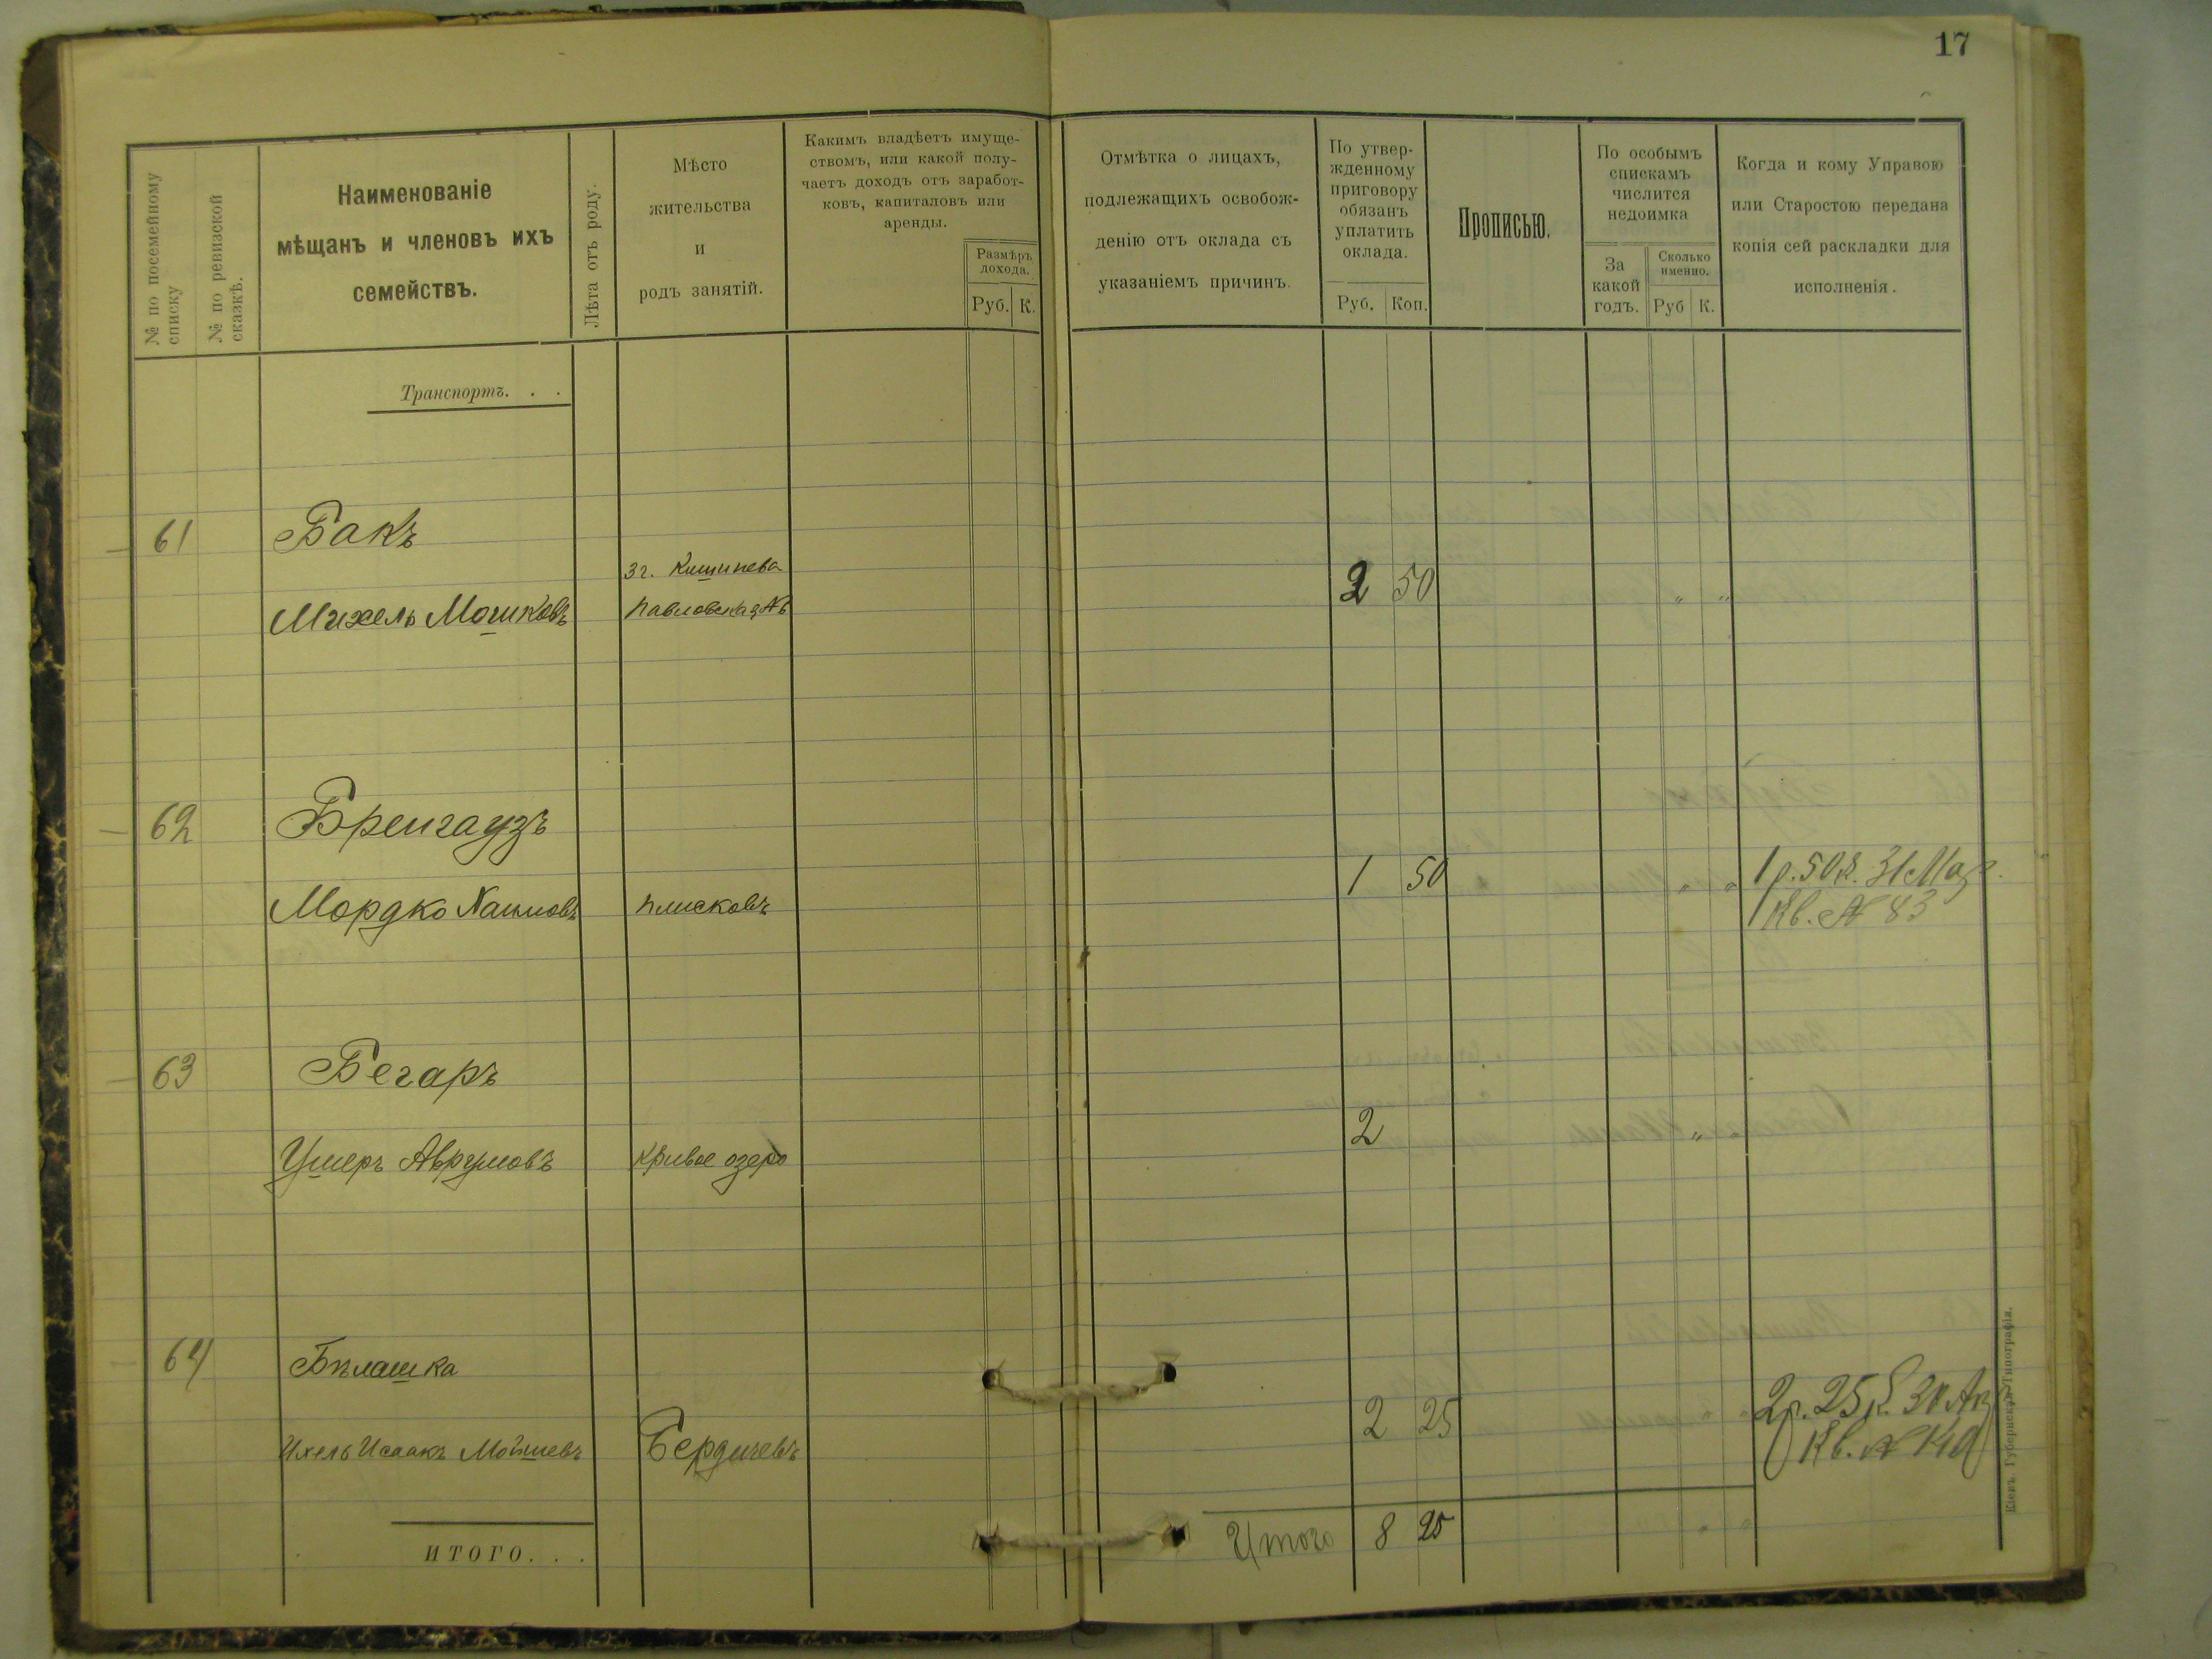 17
№ по посемейному
списку
№ по ревизской
сказкѣ.
Наименованіе
мѣщанъ и членовъ ихъ
семействъ.
Лѣта отъ роду.
Мѣсто
жительства
и
родъ занятій.
Какимъ владѣетъ имуще-
ствомъ, или какой полу-
чаетъ доходъ отъ заработ-
ковъ, капиталовъ или
аренды.
Размѣръ
дохода.
Руб. К.
Отмѣтка о лицахъ,
подлежащихъ освобож-
денію отъ оклада съ
указаніемъ причинъ.
По утвер-
жденному
приговору
обязанъ
уплатить
оклада.
Руб. Коп.
Прописью.
По особымъ
спискамъ
числится
недоимка
За
какой
годъ.
Сколько
именно.
Руб К.
Когда и кому Управою
или Старостою передана
копія сей раскладки для
исполненія.
Транспортъ. . .
61 Бакъ
г. Кишинева
Михель Мошковъ Павловская 2 50 " "
62 Бренгаузъ
Мордко Хаимовъ Плисковъ 1 50 " " 1 р. 50 к. 31 Мая
Кв. № 83
63 Бегаръ
Ушеръ Аврумовъ Кривое озеро 2 " "
64 Бѣлашка
Ихель Исаакъ Мойшевъ Бердичевъ 2 25 2 р. 25 к. 30
Кв. №
ИТОГО. . .
Итого 8 25
Кіевъ. Губернская Типографія.